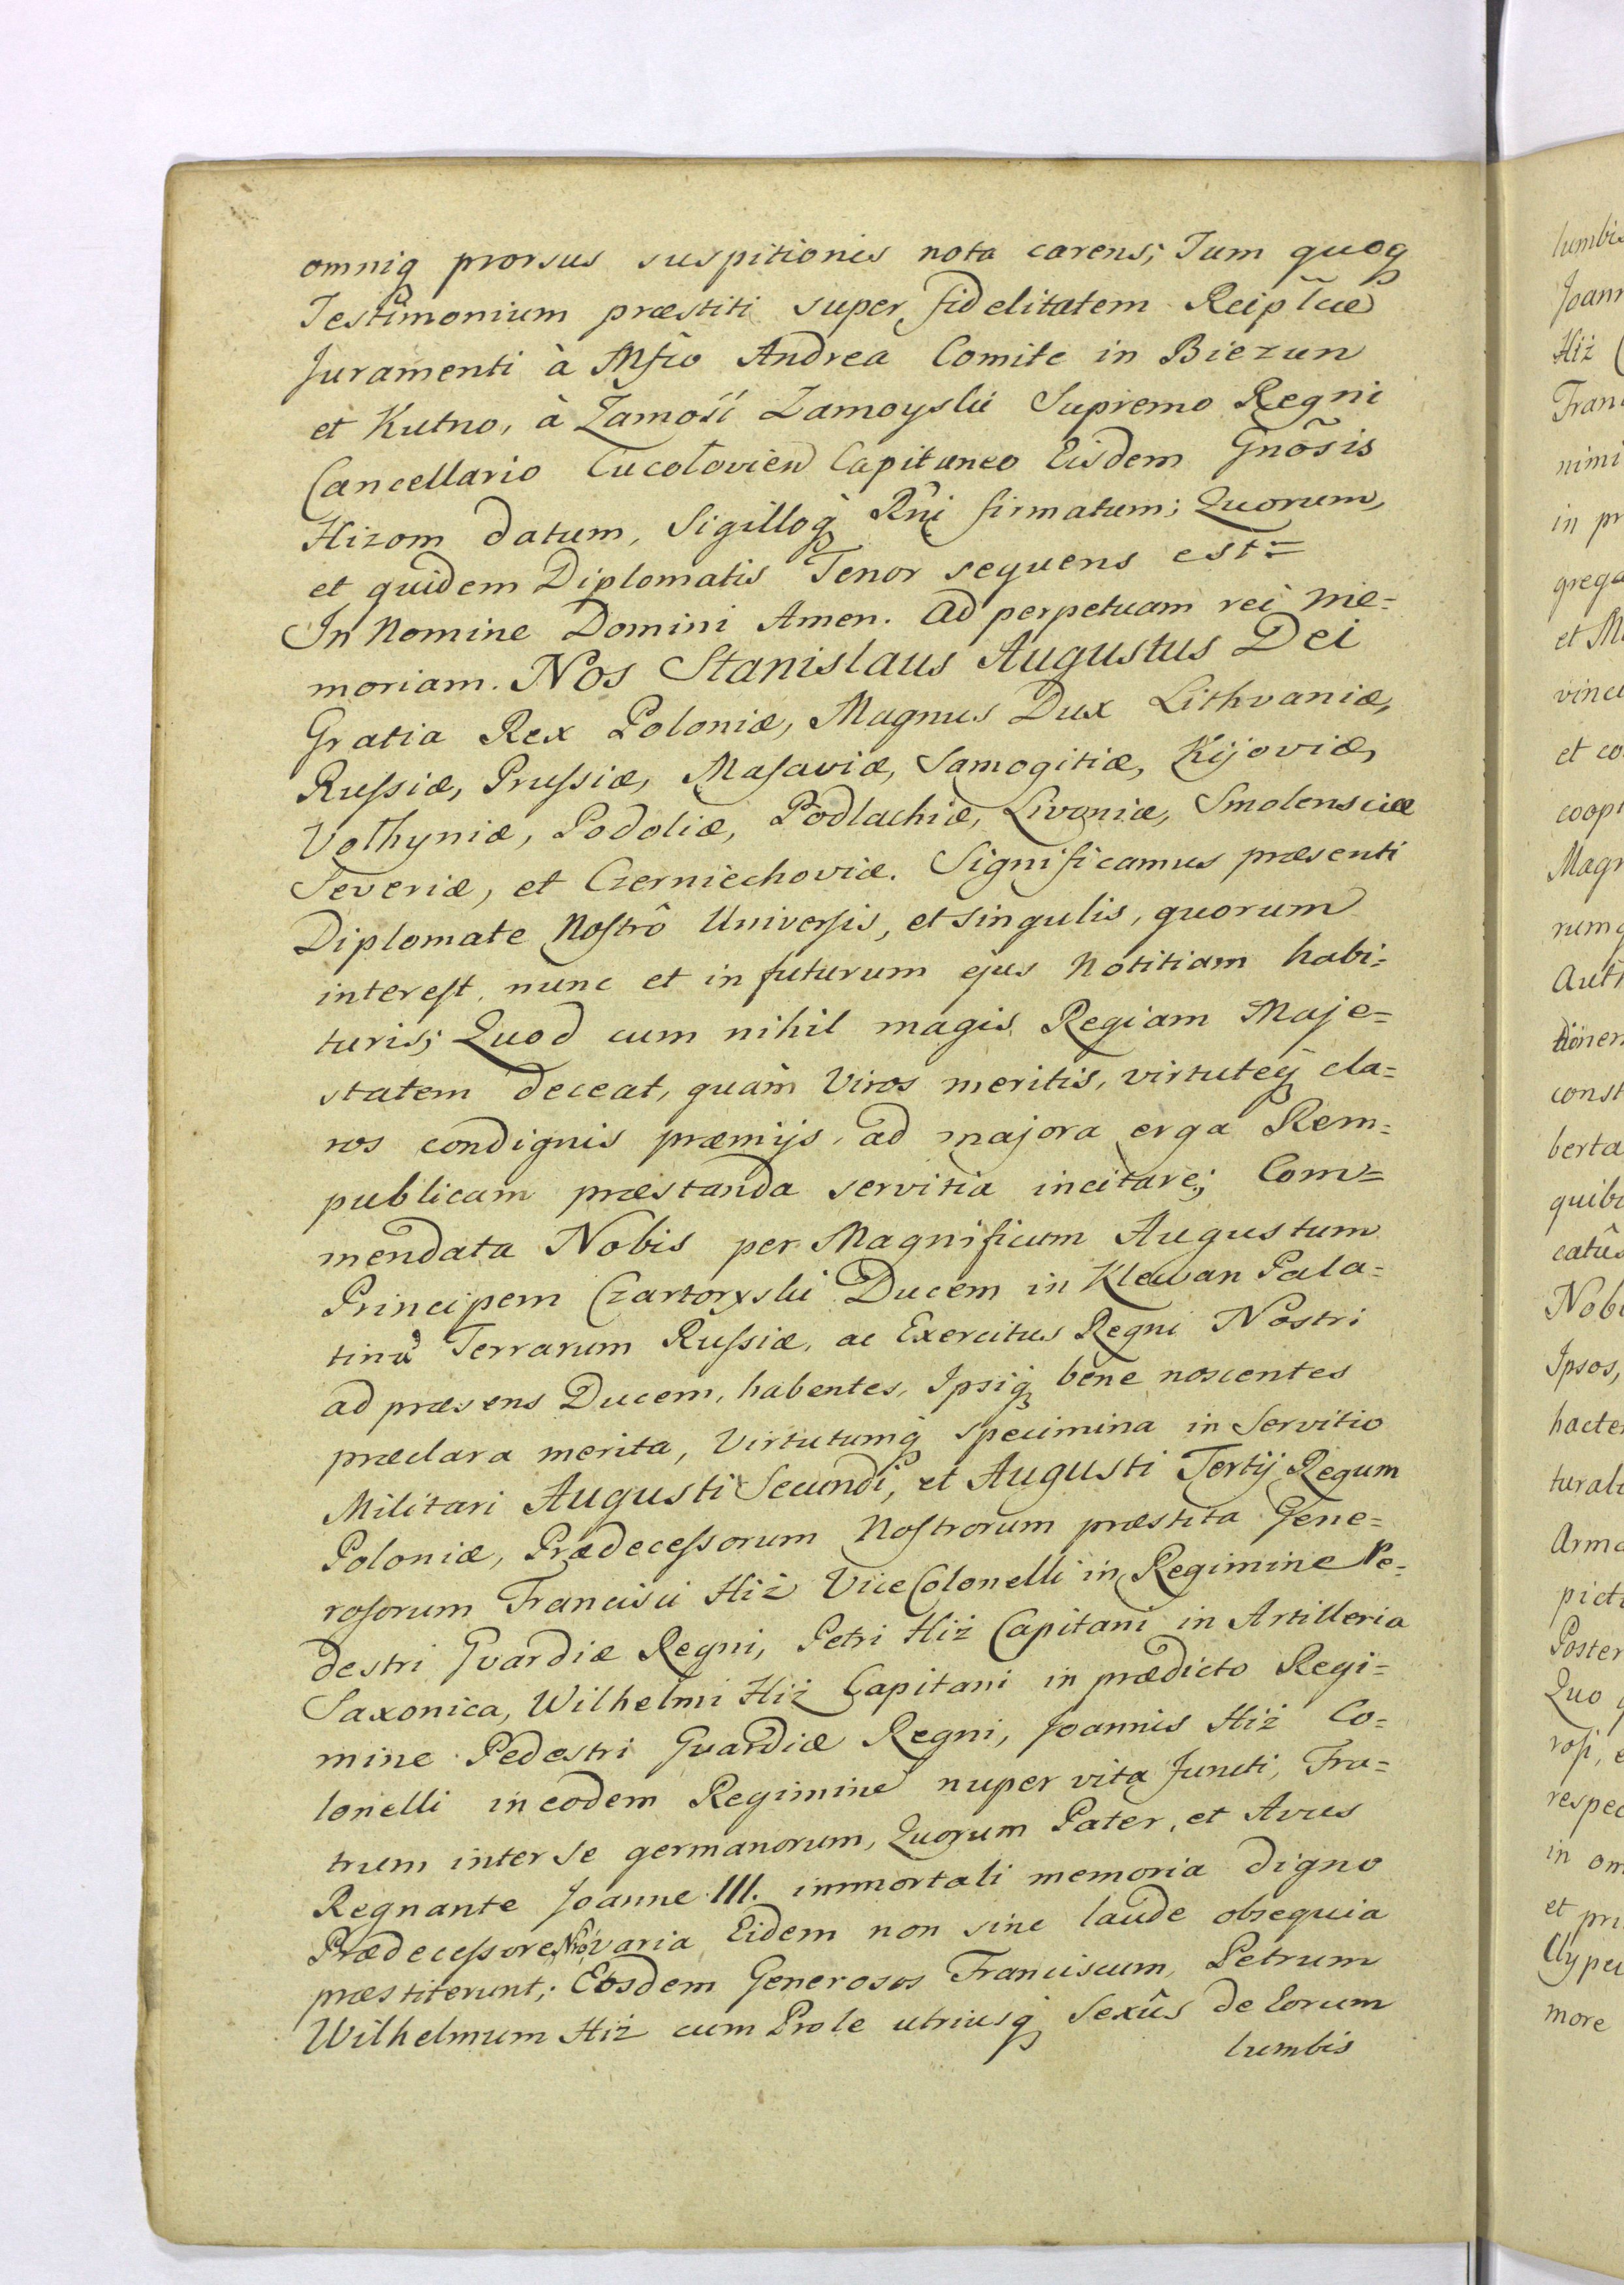 omniq prorsus suspitionis nota carens; Tum quoq
Testimonium præstiti super fidelitatem Reipl̃cæ
Juramenti à Mfĩco Andrea Comite in Biezun
et Kutno, à Zamość Zamoyski Supremo Regni
Cancellario Tucolovien Capitaneo Eisdem Gnõsis
Hizom datum, Sigilloq Rñi firmatum; Quorum,
et quidem Diplomatis Tenor sequens est=
In Nomine Domini Amen. Ad perpetuam rei me=
moriam. Nos Stanislaus Augustus Dei
Gratia Rex Poloniæ, Magnus Dux Lithvaniæ,
Russiæ, Prussiæ, Masaviæ, Samogitiæ, Kijoviæ,
Volhyniæ, Podoliæ, Podlachiæ, Livoniæ, Smolensciæ
Severiæ, et Czerniechoviæ. Significamus præsenti
Diplomate Nostrô Universis, et singulis, quorum
interest, nunc et in futurum ejus Notitiam habi=
turis; Quod cum nihil magis Regiam Maje=
statem deceat, quàm Viros meritis, virtuteq cla=
ros condignis præmijs, ad majora erga Rem=
publicam præstanda servitia incitare; Com=
mendata Nobis per Magnificum Augustum
Principem Czartoryski Ducem in Klewan Pala=
tinũ Terrarum Russiæ, ac Exercitus Regni Nostri
ad præsens Ducem, habentes, Ipsiq bene noscentes
præclara merita, Virtutumq specimina in Servitio
Militari Augusti Secundi, et Augusti Tertij Regum
Poloniæ, Prædecessorum Nostrorum præstita Gene=
rosorum Francisci Hiż ViceColonelli in Regimine Pe=
destri Gvardiæ Regni, Petri Hiż Capitani in Artilleria
Saxonica, Wilhelmi Hiż Capitani in prædicto Regi=
mine Pedestri Gvardiæ Regni, Joannis Hiż Co=
lonelli in eodem Regimine nuper vita functi, Fra=
trum inter se germanorum, Quorum Pater, et Avus
Regnante Joanne III. immortali memoria digno
Prædecessore Nrõ varia Eidem non sine laude obsequia
præstiterunt; Eosdem Generosos Franciscum, Petrum
Wilhelmum Hiż cum Prole utriusq Sexûs de Eorum
lumbis